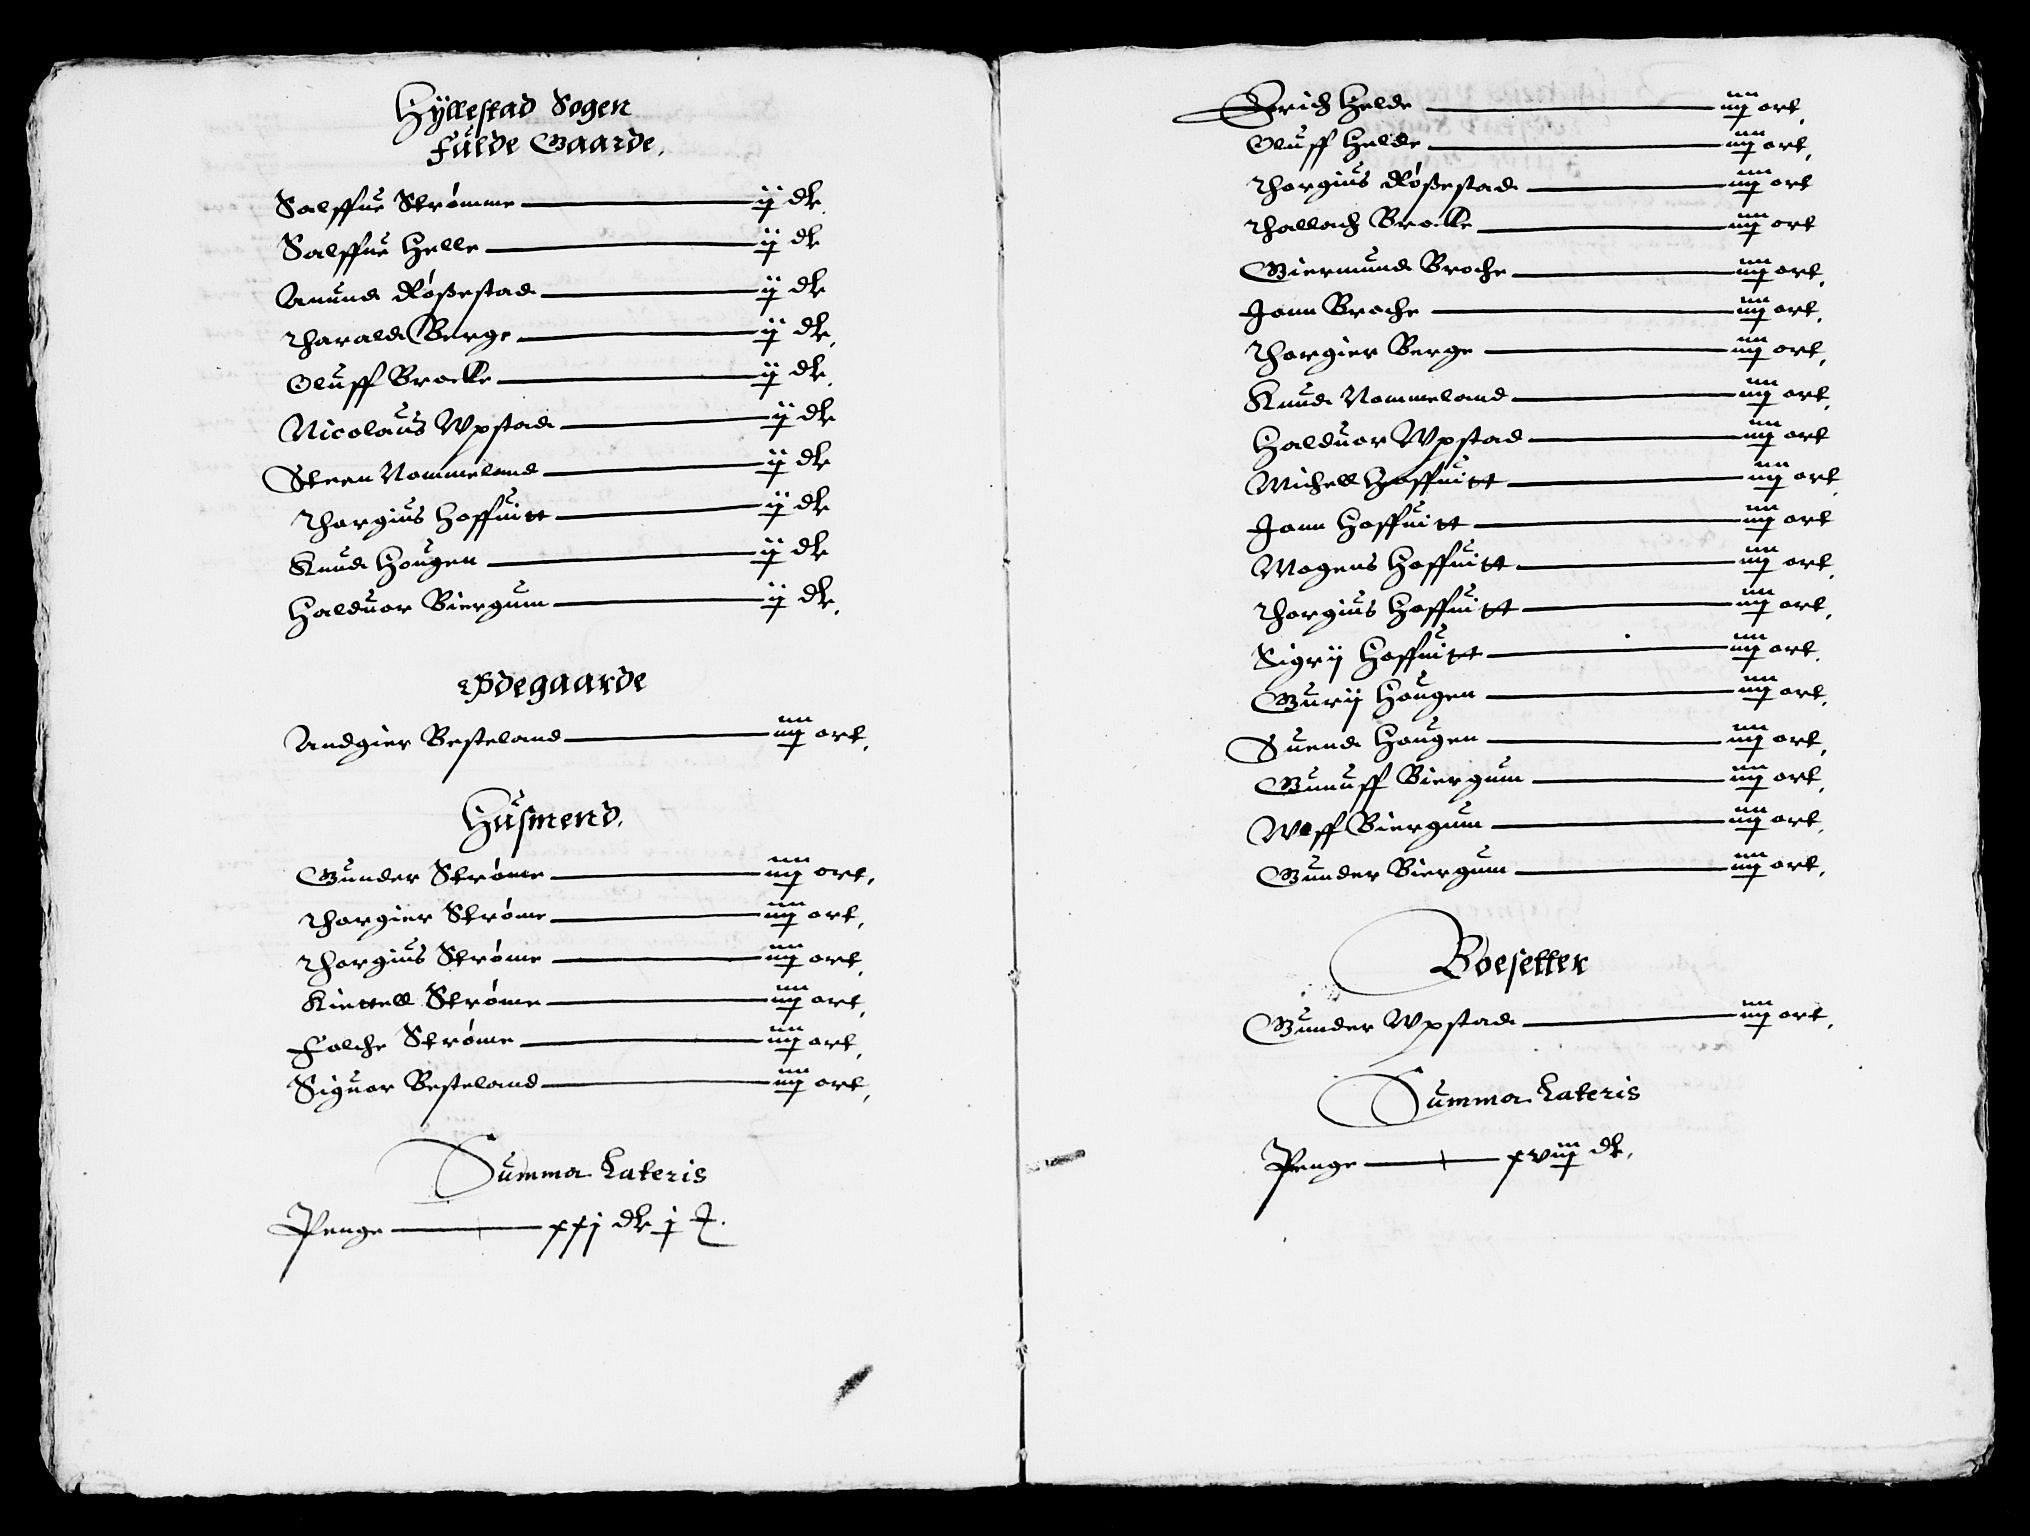 Hyllestad Sogen
Fulde Gaarde.
Salffue Strømme ij dlr.
Salffue Helle ij dlr
Anund Røßestad ij dlr
Tharald Berge ij dlr.
Oluff Brocke ij dlr.
Nicolaus Wpstad ij dlr
Steen Nommeland ij dlr
Thorgius Hoffuitt ij dlr
Knud Hougen ij dlr
Halduor Biergum ij dlr.
Ødegaarde
Andgier Besteland iiij ort.
Husmend.
Gunder Strøme iiij ort.
Thorgier Strøme iiij ort.
Thorgius Strøme iiij ort.
Kiettell Strøme iiij ort.
Folche Strøme iiij ort.
Siguor Besteland iiij ort.
Summa Lateris
Penge xxj dlr j
Erich Helde iiij ort.
Oluff Helde iiij ort.
Thorgius Røßestad iiij ort
Thallach Brocke iiij ort
Giermund Broche iiij ort.
Jonn Broche iiij ort.
Thorgier Berge iiij ort.
Knud Nommeland iiij ort.
Halduor Wpstad iiij ort
Michell Hoffuitt iiij ort.
Jonn Hoffuitt iiij ort
Mogens Hoffuitt iiij ort.
Thorgius Hoffuitt iiij ort.
Sigrij Hoffuitt iiij ort.
Gurij Hougen iiij ort.
Suend Hougen iiij ort.
Gunuff Biergum iiij ort.
Wlff Biergum iiij ort.
Gunder Biergum iiij ort.
Boesetter
Gunder Wpstad iiij ort.
Summa Lateris
Penge xviij dlr.